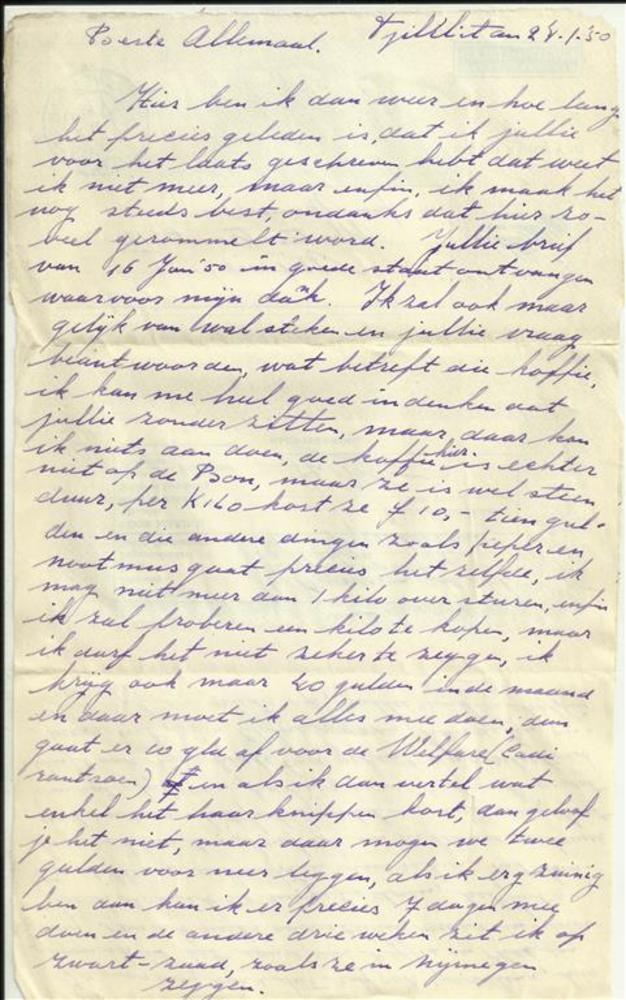 Beste Allemaal. Tjililitan 24.1.50
Hier ben ik dan weer en hoe lang
het precies geleden is, dat ik jullie
voor het laats geschreven hebt dat weet
ik niet meer, maar enfin, ik maak het
nog steeds best, ondanks dat hier zo-
veel gerommelt word. Jullie brief
van 16 Jan '50 in goede staat ontvangen
waarvoor mijn dank. Ik zal ook maar
gelijk van wal steken en jullie vraag
beantwoorden, wat betreft die koffie,
ik kan me heel goed indenken dat
jullie zonder zitten, maar daar kan
ik niets aan doen, de koffie hier is echter
niet op de Bon, maar ze is wel steen
duur, per Kilo kost ze f 10,- tien gul-
den en die andere dingen zoals peper en
nootmus gaat precies het zelfde, ik
mag niet meer dan 1 kilo over sturen, enfin
ik zal proberen een kilo te kopen, maar
ik durf het niet zeker te zeggen, ik
krijg ook maar 40 gulden in de maand
en daar moet ik alles mee doen, dan
gaat er 10 gld af voor de Welfare (Cadi
rantsoen) en als ik dan vertel wat
enkel het haar knippen kost, dan geloof
je het niet, maar daar mogen we twee
gulden voor neer leggen, als ik erg zuinig
ben dan kan ik er precies 7 dagen mee
doen en de andere drie weken zit ik op
zwart-zaad, zoals ze in Nijmegen
zeggen.